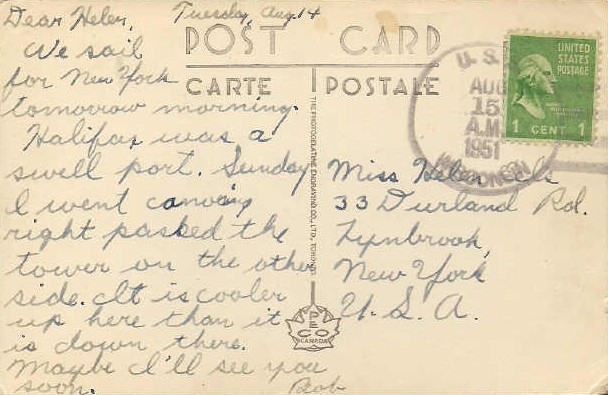 Dear Helen, Tuesday, Aug. 14
We sail
for New York
tomorrow morning.
Halifax was a
swell port. Sunday
I went canoeing
right passed the
tower on the other
side. It is cooler
up here than it
is down there.
Maybe I'll see you
soon. Bob
POST CARD
CARTE POSTALE
THE PHOTOGELATINE ENGRAVING CO., LTD., TORONTO.
PECO
CANADA
U. S.
AUG
15
A.M.
1951
UNITED
STATES
POSTAGE
1 CENT 1
Miss Helen
33 Durland Rd.
Lynbrook,
New York
U. S. A.